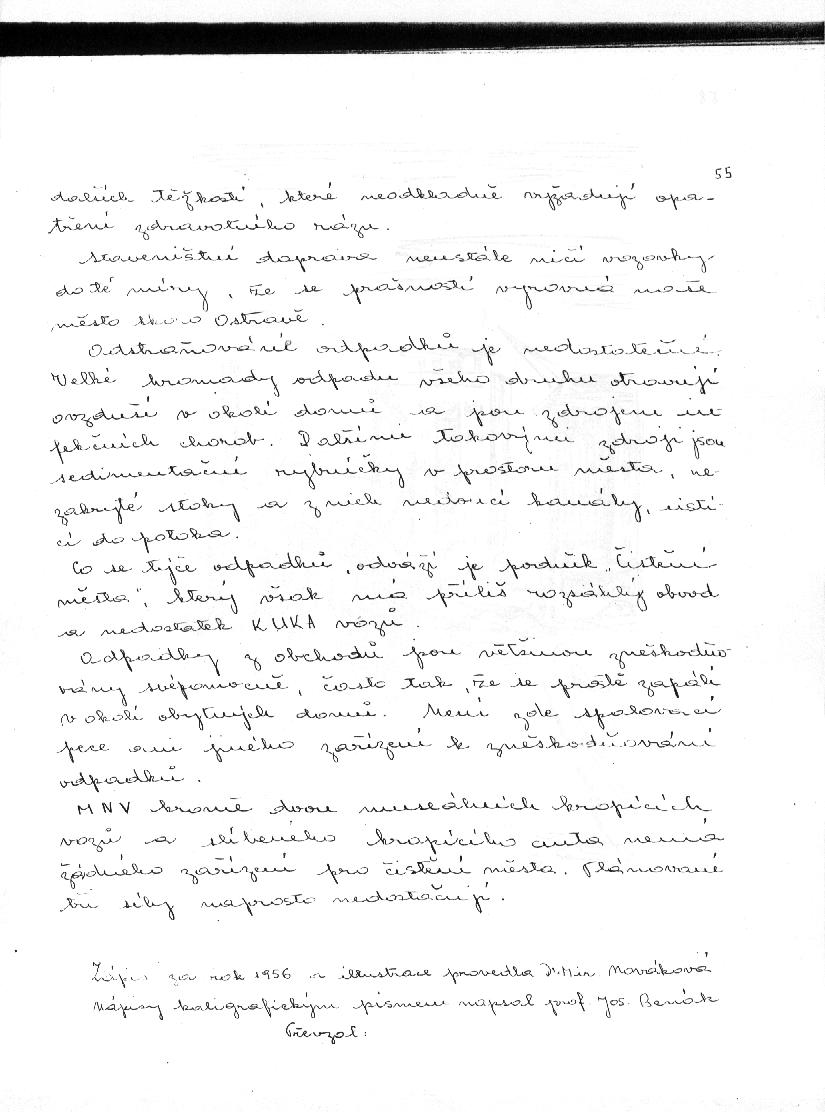 55
dalších těžkostí, které neodkladně vyžadují opa-
tření zdravotního rázu.
Staveništní doprava neustále ničí vozovky
do té míry, že se prašností vyrovná naše
město skoro Ostravě.
Odstraňování odpadků je nedostatečné.
Velké hromady odpadu všeho druhu otravují
ovzduší v okolí domů a jsou zdrojem in-
fekčních chorob. Dalšími takovými zdroji jsou
sedimentační rybníčky v prostoru města, ne-
zakryté stoky a z nich vedoucí kanály, ústí-
cí do potoka.
Co se týče odpadků, odváží je podnik „Čistění
města", který však má příliš rozsáhlý obvod
a nedostatek KUKA vozů.
Odpadky z obchodů jsou většinou zneškodňo-
vány svépomocně, často tak, že se prostě zapálí
v okolí obytných domů. Není zde spalovací
pece ani jiného zařízení k zneškodňování
odpadků.
MNV kromě dvou museálních kropících
vozů a slíbeného kropícího auta nemá
žádného zařízení pro čistění města. Plánované
tři síly naprosto nedostačují.
Zápis za rok 1956 a illustrace provedla Dr. Mir. Nováková
Nápisy kaligrafickým písmem napsal prof. Jos. Benák
Převzal: